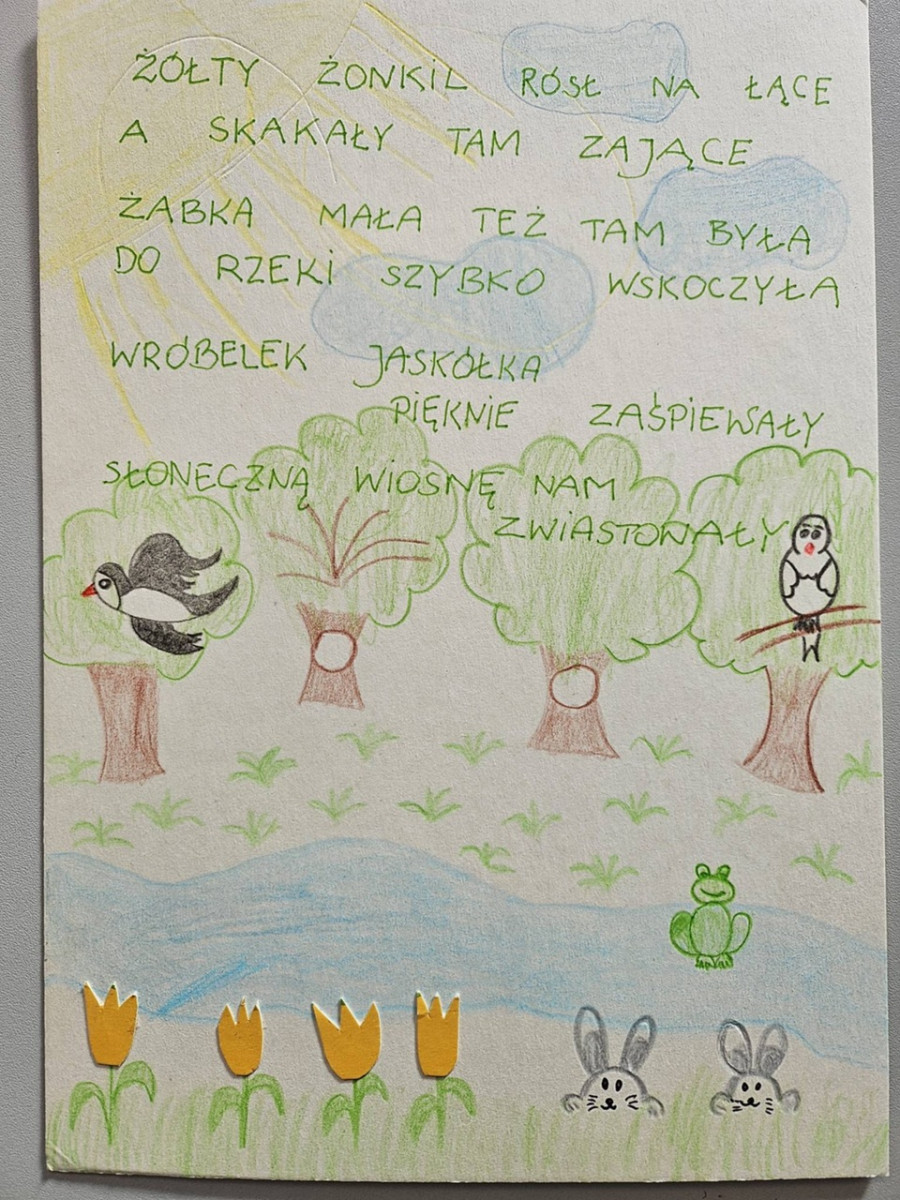 ŻÓŁTY ŻONKIL RÓSŁ NA ŁĄCE
A SKAKAŁY TAM ZAJĄCE
ŻABKA MAŁA TEŻ TAM BYŁA
DO RZEKI SZYBKO WSKOCZYŁA
WRÓBELEK JASKÓŁKA
PIĘKNIE ZAŚPIEWAŁY
SŁONECZNĄ WIOSNĘ NAM
ZWIASTOWAŁY